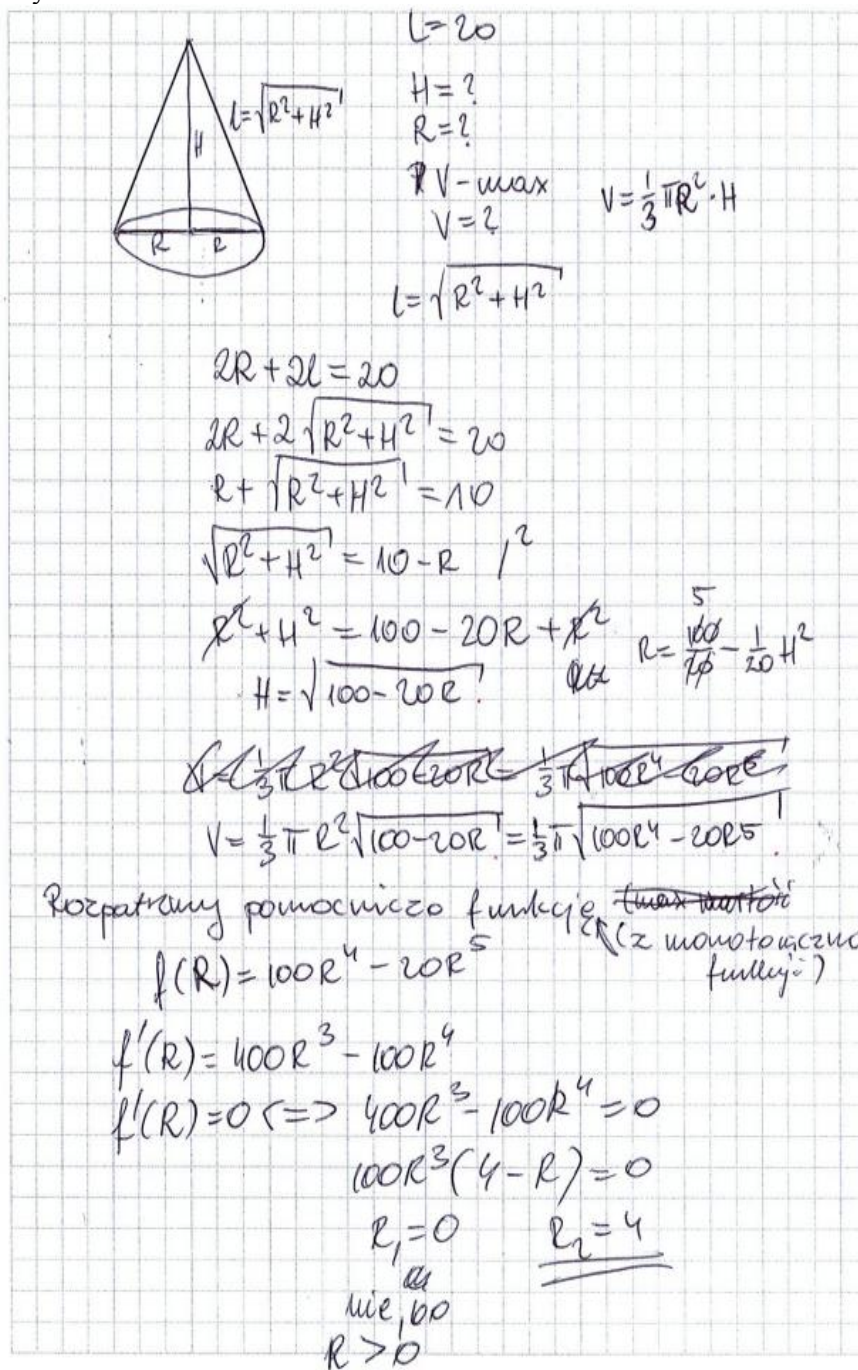 L=20
l=√(R²+H²)
H
R R
H=?
R=?
V-max
V=?
V=1/3 πR²·H
l=√(R²+H²)
2R+2l=20
2R+2√(R²+H²)=20
R+√(R²+H²)=10
√(R²+H²)=10-R /²
R²+H²=100-20R+R²
R=100/20-1/20 H²
5
H=√(100-20R)
V=1/3 πR²√(100-20R)=1/3 π√(100R⁴-20R⁵)
V=1/3 πR²√(100-20R)=1/3 π√(100R⁴-20R⁵)
Rozpatrzmy pomocniczo funkcję
(z monotoniczno
funkcji)
f(R)=100R⁴-20R⁵
f'(R)=400R³-100R⁴
f'(R)=0 <=> 400R³-100R⁴=0
100R³(4-R)=0
R₁=0 R₂=4
nie, bo
R>0